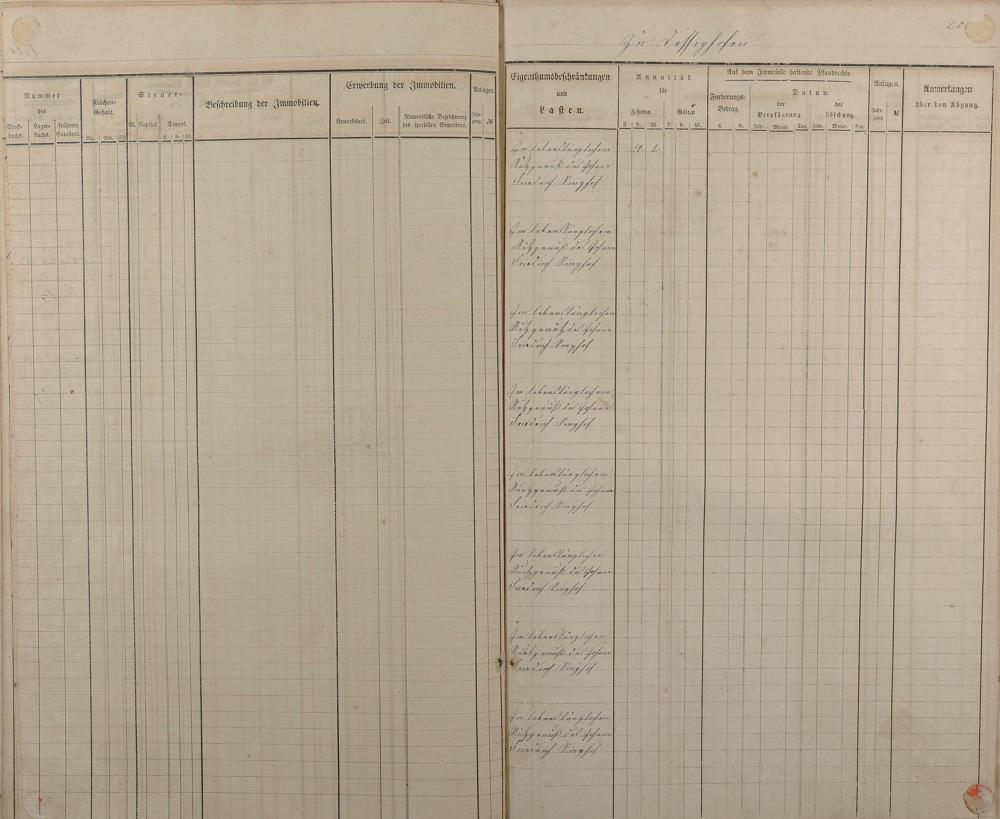 Nummer
des
Stockbuchs.
Lagerbuchs.
früheren Catasters.
Flächen-Gehalt.
Mg. Rth. Sch.
Steuer-
St. Capital.
Simpel.
fl. kr. hl.
Beschreibung der Immobilien.
Erwerbung der Immobilien.
Erwerbsart.
Zeit.
Namentliche Bezeichnung
des speciellen Erwerbers.
Anlagen.
Jahrgang.
№
Zu
Eigenthumsbeschränkungen
und
Lasten.
Annuität
für
Zehnten.
Gülten
fl. kr. hl. fl. kr. hl.
Auf dem Immobile haftende Pfandrechte.
Forderungs-
Betrag.
fl. kr.
Datum
der
Verpfändung.
der
Löschung.
Jahr. Monat. Tag. Jahr. Monat. Tag.
Anlagen.
Jahrgang
№
Anmerkungen
über den Abgang.
Im lebenslänglichen
Nutzgenuß des Johann
Friedrich
10 2
Im lebenslänglichen
Nutzgenuß des Johann
Friedrich
Im lebenslänglichen
Nutzgenuß des Johann
Friedrich
Im lebenslänglichen
Nutzgenuß des Johann
Friedrich
Im lebenslänglichen
Nutzgenuß des Johann
Friedrich
Im lebenslänglichen
Nutzgenuß des Johann
Friedrich
Im lebenslänglichen
Nutzgenuß des Johann
Friedrich
Im lebenslänglichen
Nutzgenuß des Johann
Friedrich